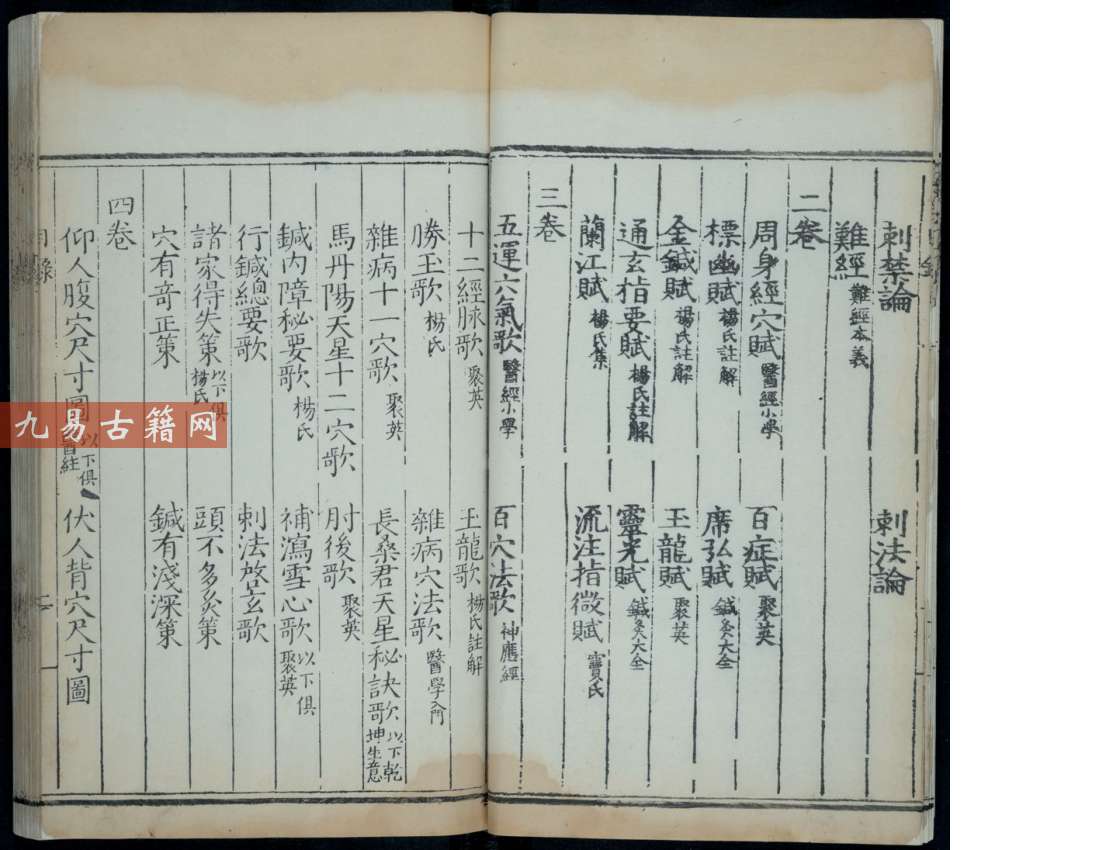 刺禁論 刺法論
難經 難經本義
二卷
周身經穴賦 醫經小學 百症賦 聚英
標幽賦 楊氏註解 席弘賦 鍼灸大全
金鍼賦 楊氏註解 玉龍賦 聚英
通玄指要賦 楊氏註解 靈光賦 鍼灸大全
蘭江賦 楊氏集 流注指微賦 竇氏
三卷
五運六氣歌 醫經小學 百穴法歌 神應經
十二經脉歌 聚英 玉龍歌 楊氏註解
勝玉歌 楊氏 雜病穴法歌 醫學入門
雜病十一穴歌 聚英 長桑君天星秘訣歌 以下乾坤生意
馬丹陽天星十二穴歌 肘後歌 聚英
鍼內障秘要歌 楊氏 補瀉雪心歌 以下俱聚英
行鍼總要歌 刺法啓玄歌
諸家得失策 以下俱楊氏 頭不多灸策
穴有奇正策 鍼有淺深策
四卷
仰人腹穴尺寸圖 以下俱 伏人背穴尺寸圖
目錄
九易古籍网